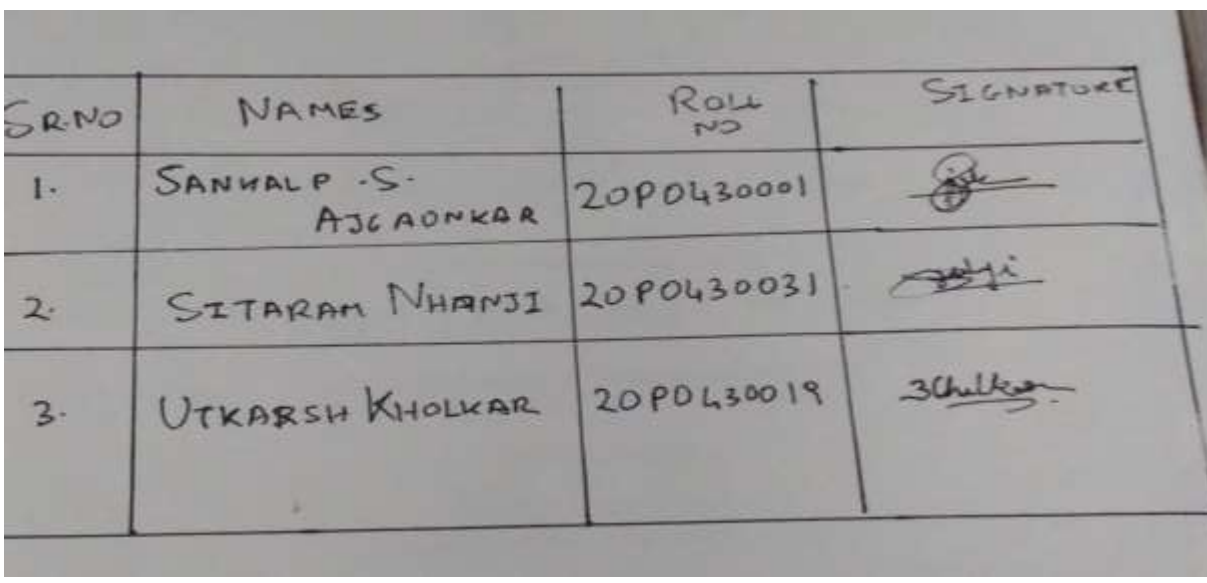 SR.NO NAMES ROLL NO SIGNATURE
1. SANKALP .S. AJGAONKAR 20P0430001
2. SITARAM NHANJI 20P0430031
3. UTKARSH KHOLKAR 20P0430019